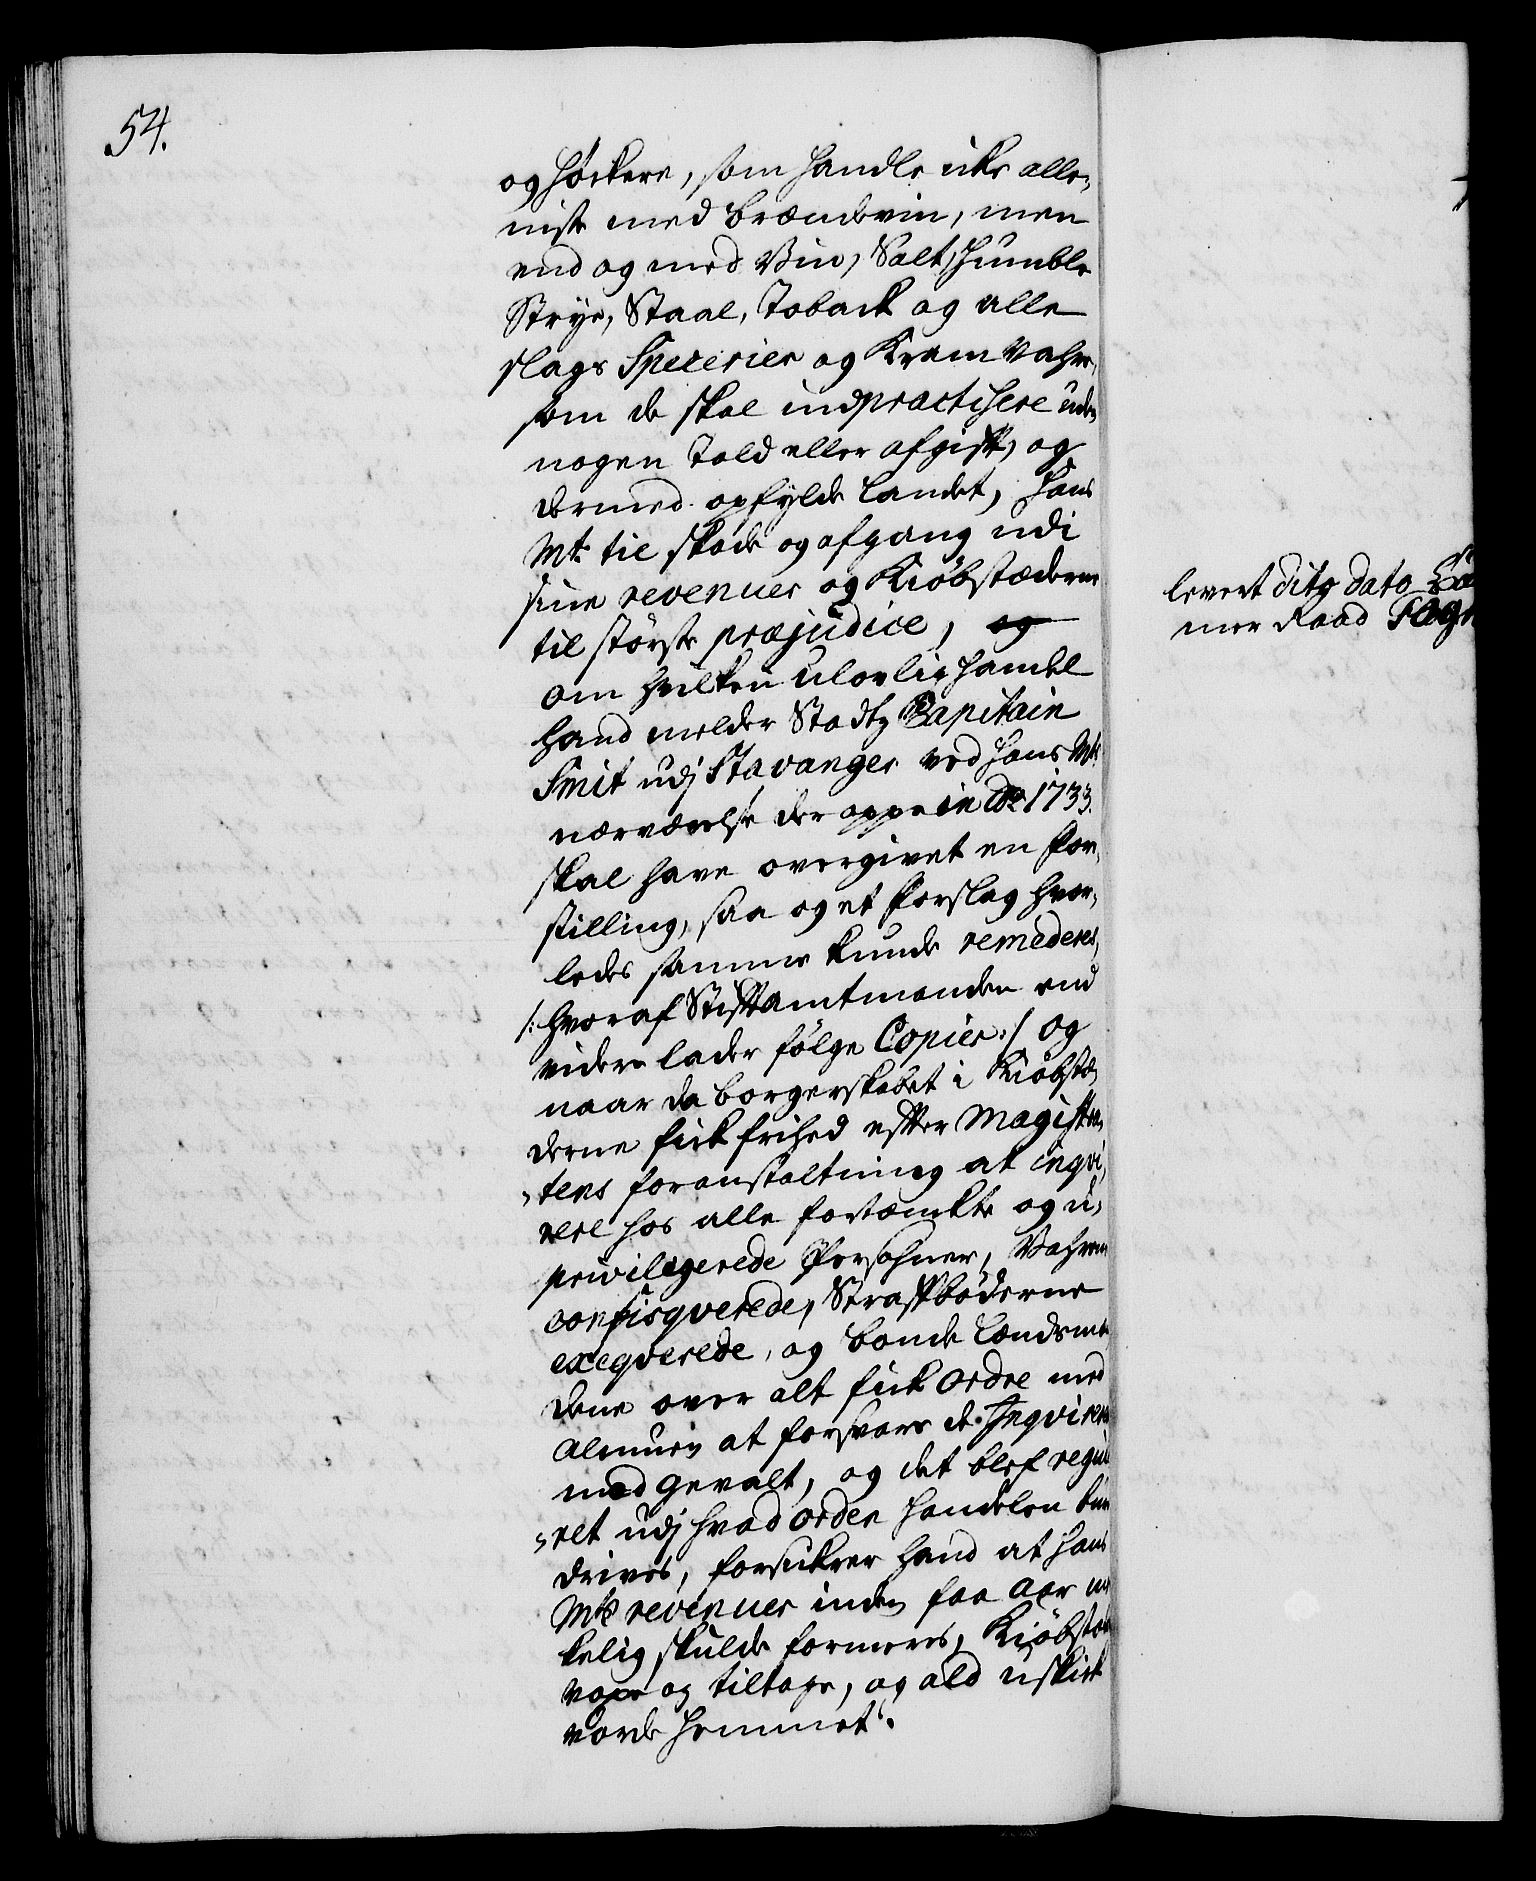 54.
og Hörkere, som handle icke alle,,
niste med Brændeviin, men
end og med Viin, Salt, Humble
Strye, Staal, Toback og alle
slags Specerier og Kram Vahre,
som de skal indpractisere uden
nogen Told eller afgift, og
dermed opfylde Landet, Hans
Mt: til skade og afgang udi
sine revenuer og Kiöbstæderne
til störste præjudice, og
om hvilken Ulovlig Handel
hand melder Stadtz Capitain
Smit udj Stavanger ved Hans Mts
nærværelse der oppe in Ao 1733.
skal have overgivet en For,,
stilling, saa og et Forslag hvor,,
ledes samme kunde remederes,
/: hvoraf Stiftamtmanden end
videre lader fölge Copier :/ og
naar da borgerskabet i Kiöbstæ,,
derne fick frihed efter Magistra,,
,,tens foranstaltning at inqvi,,
rere hos alle fortænckte og u,,
privilegerede Persohner, Vahrene
confisqverede, Straffböderne
exeqverede, og bonde Lændsmæn
dene over alt fick Ordre med
Almuen at forsvare de Inqvirere
med gevalt, og det blef regule
,,ret udj hvad orden Handelen kun
drives, forsickrer hand at Hans
Mts revenuer inden faa Aar mer
kelig skulde formeres, Kiöbstæd
voxe og tiltage, og ald uskick
vorde hemmet.
levert dito dato
mer Raad